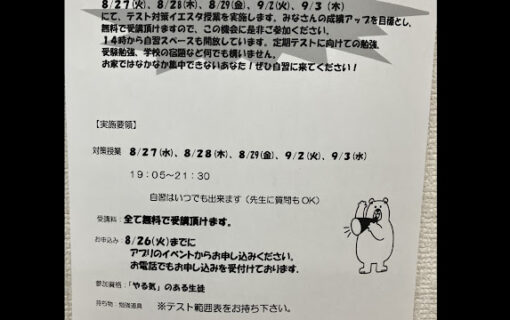 8/27(火)、8/28(木)、8/29(金)、9/2(火)、9/3(木)
にて、テスト対策イエスタ授業を実施します。みなさんの成績アップを目標とし、
無料で受講頂けますので、この機会に是非ご参加ください。
14時から自習スペースも開放しています。定期テストに向けての勉強、
受験勉強、学校の宿題など何でも構いません。
お家ではなかなか集中できないあなた!ぜひ自習に来てください!
【実施要領】
対策授業 8/27(水)、8/28(木)、8/29(金)、9/2(火)、9/3(水)
19:05~21:30
自習はいつでも出来ます(先生に質問もOK)
受講料:全て無料で受講頂けます。
お申込み:8/26(火)までに
アプリのイベントからお申し込みください。
お電話でもお申し込みを受付けております。
参加資格:「やる気」のある生徒
持ち物:勉強道具 ※テスト範囲表をお持ち下さい。